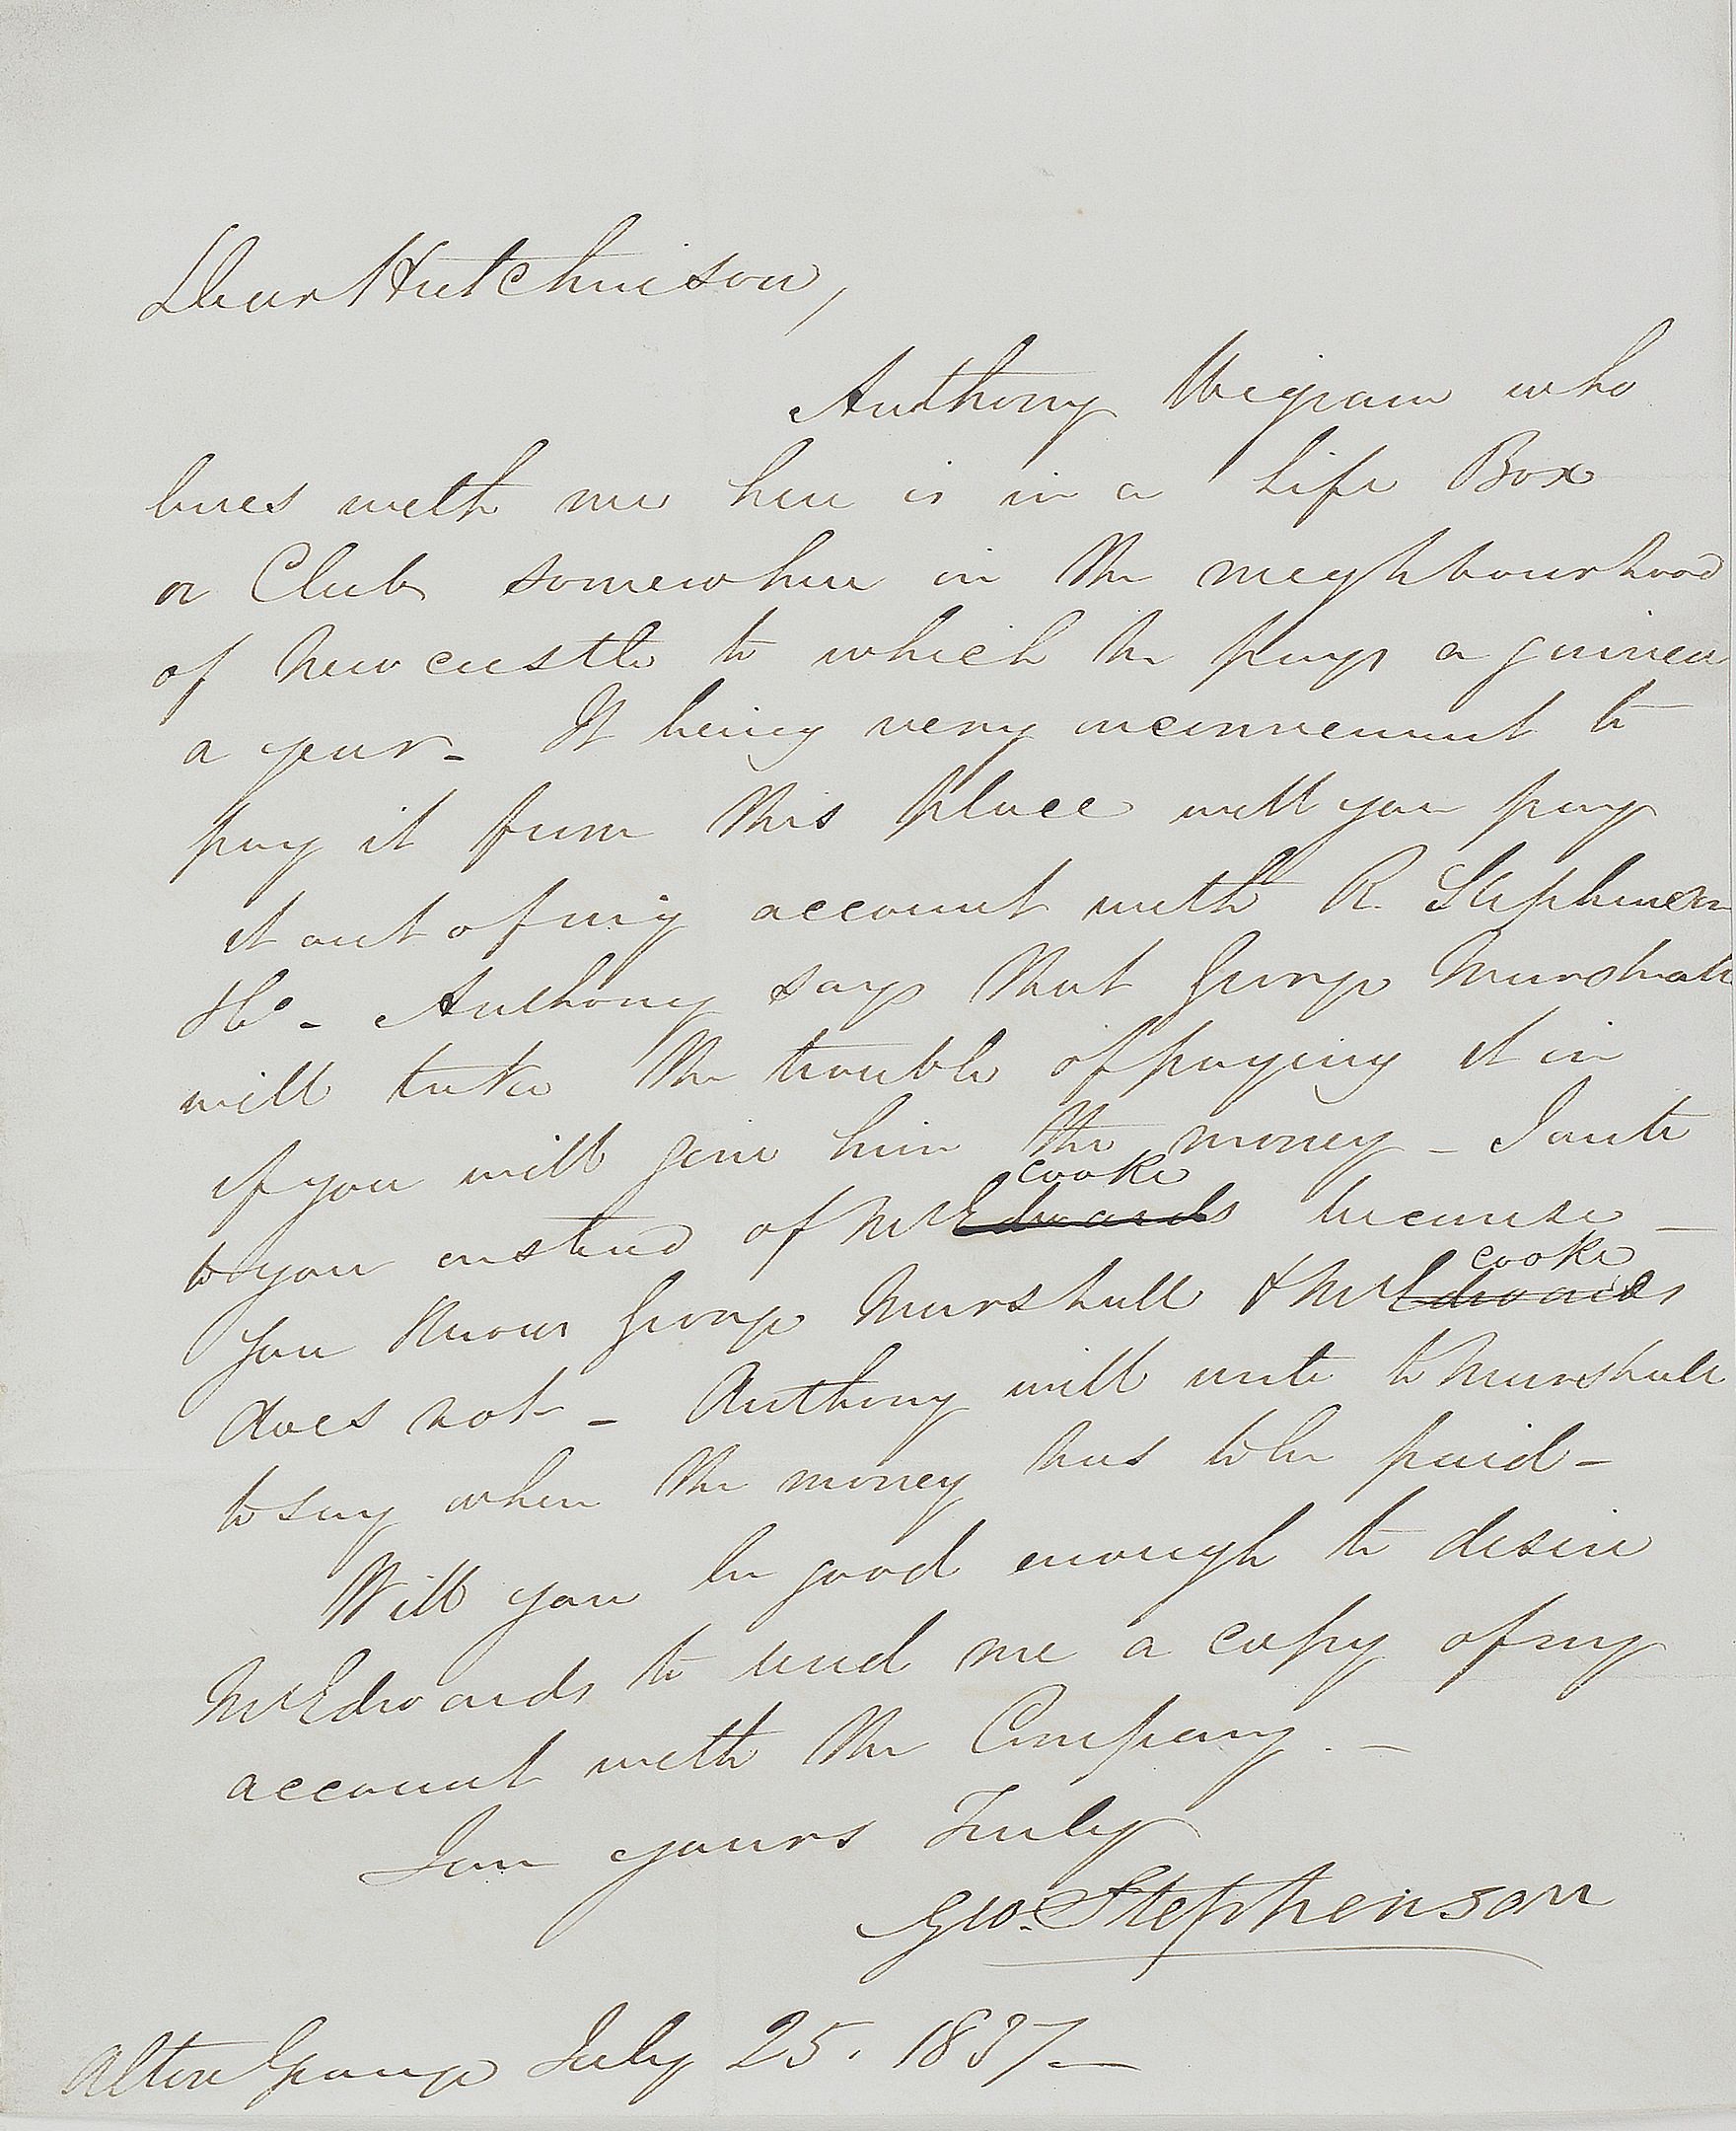 Dear Hutchinson,
Anthony Wigram who
lives with me here is in a Life Box
or Club somewhere in the neighbourhood
of Newcastle to which he pays a guinea
a year - It being very inconvenient to
pay it from this place will you pay
it out of my account with R. Stephenson
& Co - Anthony says that George Marshall
will take the trouble of paying it in
if you will give him the money - I write
cooke
to you instead of Mr Edwards because -
cooke
you know George Marshall & Mr Edwards
does not - Anthony will write to Marshall
to say when the money has to be paid -
Will you be good enough to desire
Mr Edwards to send me a copy of my
account with the Company. -
I am yours Truly
Geo. Stephenson
Alton Grange July 25. 1837 -